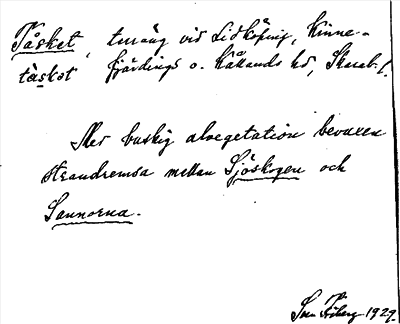 Tåsket, terräng vid Lidköping, Kinne-
tasket fjärdings o. Kållands hd, Skarab. l.
Med buskig alvegetation bevuxen
strandremsa mellan Sjöskogen och
Sannorna.
Sven Friberg 1929.